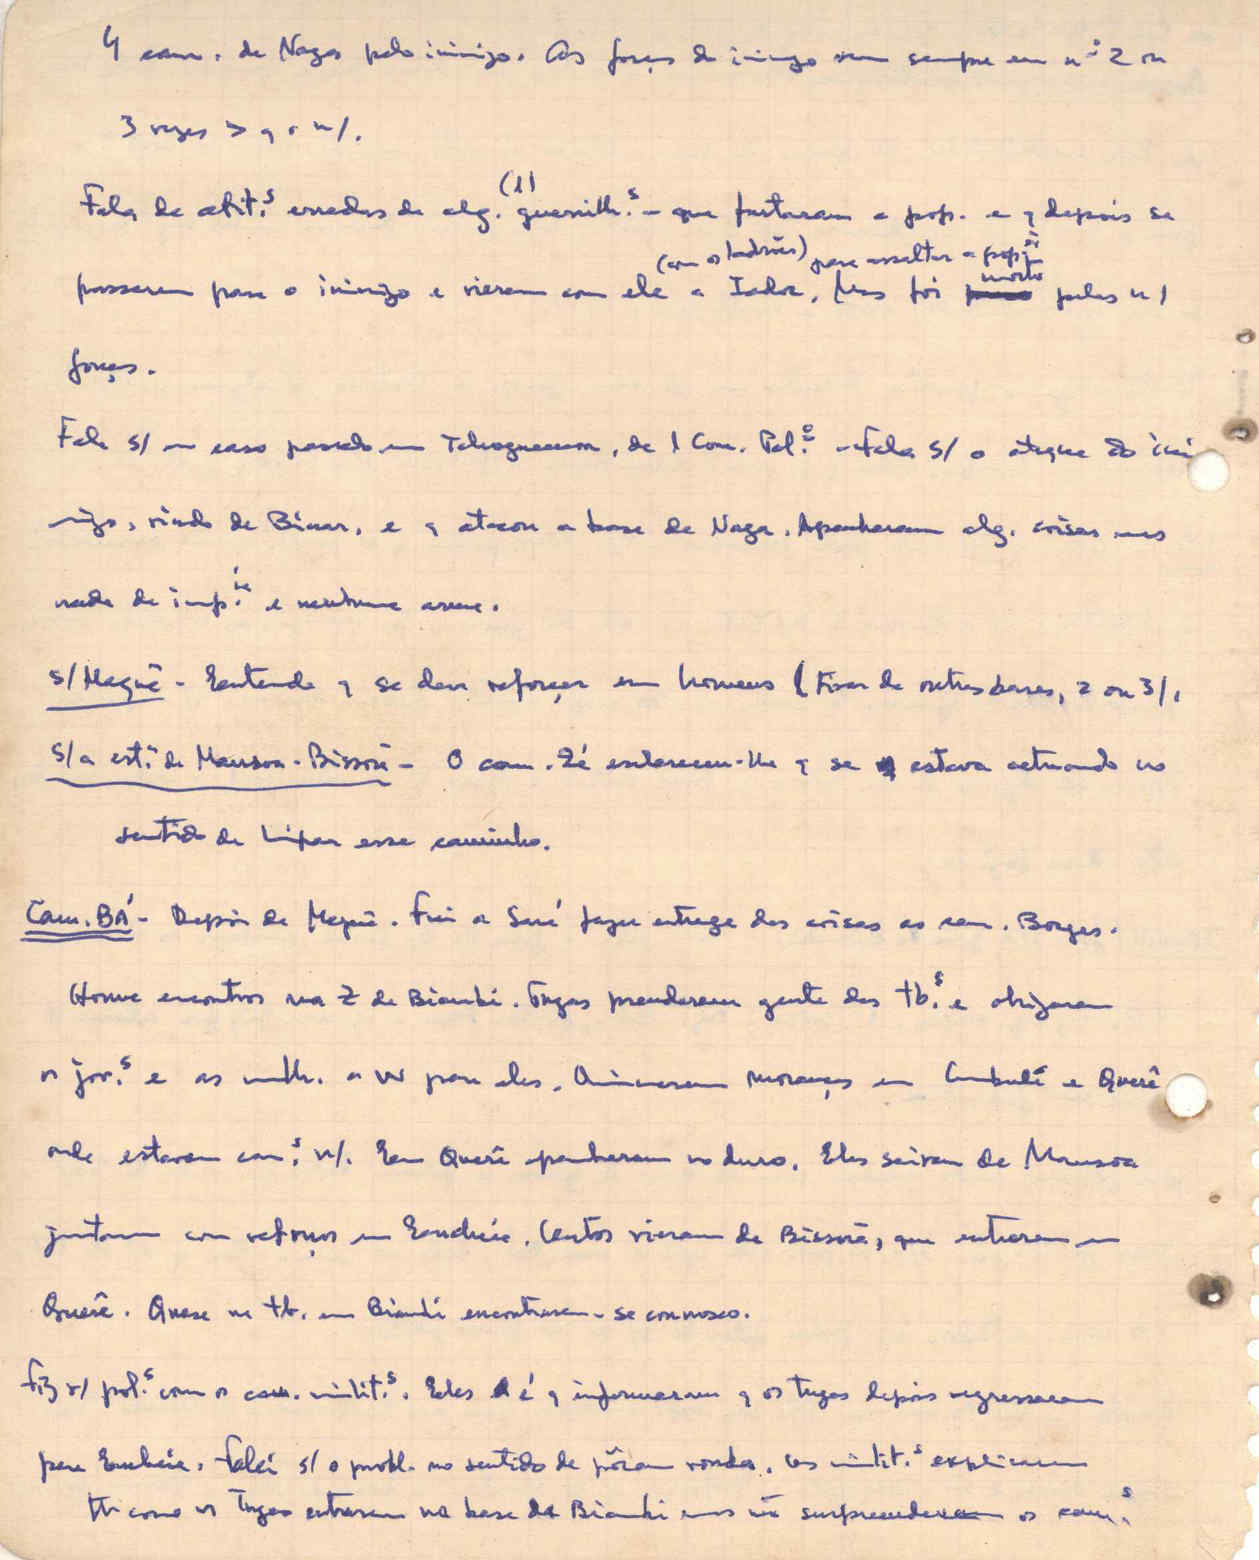 4 cam. de Naga pelo inimigo. As forças do inimigo vem sempre em nº 2 ou
3 vezes > q o n/.
(1)
Fala de atit.s erradas de alg. guerrilh.s - que furtaram a pop. e q depois se
(com os ladrões) para assaltar a pop.
passaram para o inimigo e vieram com ele a Iador. Mas foi morto pelas n/
forças.
Fala s/ um caso passado em, de 1 Com. Pol.º - Fala s/ o ataque do ini
migo, vindo de Binar, e q atacou a base de Naga. Apanharam alg. coisas mas
nada de imp.ia e nenhuma arma.
s/ Maqué - Entende q se deve reforçar em homens (Tirar de outras bases, 2 ou 3/.
S/ a est.ª de Mansoa - Bissorã - O cam. Zé esclareceu-lhe q se estava actuando no
sentido de limpar esse caminho.
Cam. BÁ - Depois de Maqué. Fui a Sará fazer entrega das coisas ao cam. Borges.
Houve encontros na Z de Biambi. Tugas prenderam gente das tb.s e obrigaram
os jov.s e as mulh. a W para eles. Queimaram moranças em e Queré
onde estavam cam.s n/. Em Queré apanharam no duro. Eles saíram de Mansoa
juntaram com reforços em Encheia. Outros vieram de Bissorã, que entraram em
Queré. Quase na tb. em Biambi encontraram-se connosco.
Fiz r/ pol.s com os cam. milit.s. Eles é q informaram q os tugas depois regressaram
para Encheia. Falei s/ o probl. no sentido de pôram rondas. Os milit.s explicaram
lhi como os Tugas entraram na base de Biambi mas nã surpreenderam os cam.s